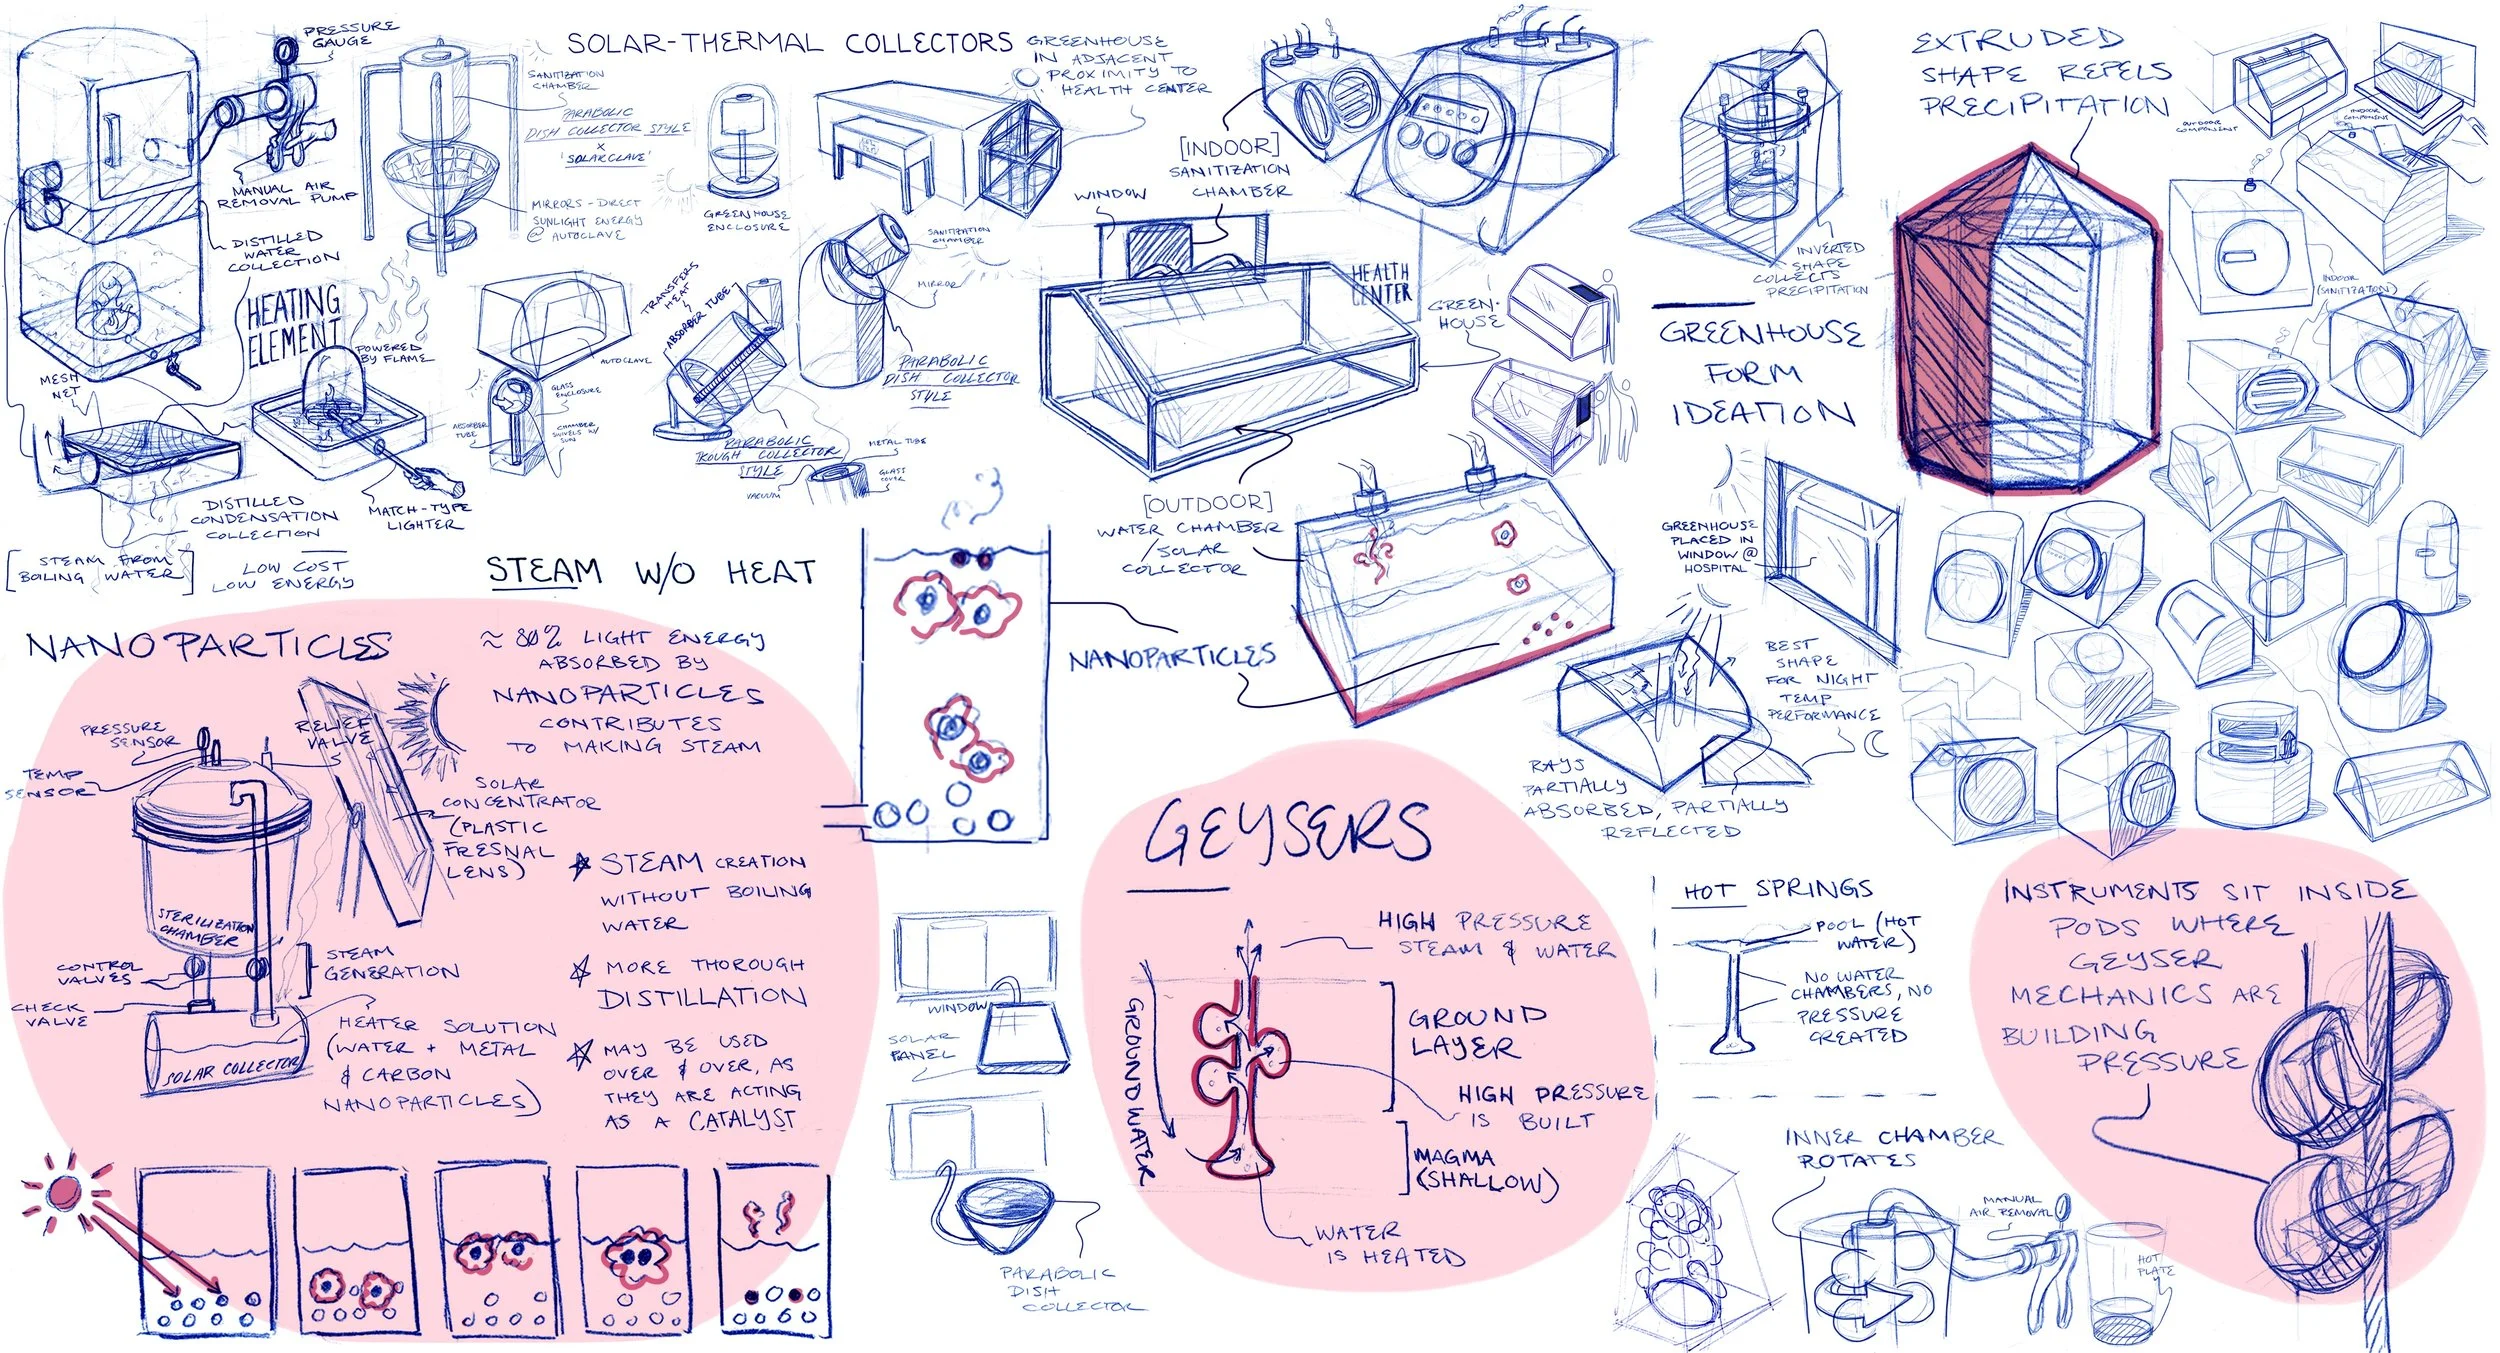 PRESSURE
GAUGE
MANUAL AIR
REMOVAL PUMP
DISTILLED
WATER
COLLECTION
HEATING
ELEMENT
POWERED
BY FLAME
MESH
NET
MATCH-TYPE
LIGHTER
DISTILLED
CONDENSATION
COLLECTION
[STEAM FROM
BOILING WATER]
LOW COST
LOW ENERGY
SOLAR-THERMAL COLLECTORS
SANITIZATION
CHAMBER
PARABOLIC
DISH COLLECTOR STYLE
X
'SOLARCLAVE'
MIRRORS - DIRECT
SUNLIGHT ENERGY
@ AUTOCLAVE
GREENHOUSE
ENCLOSURE
AUTOCLAVE
GLASS
ENCLOSURE
ABSORBER
TUBE
CHAMBER
SWIVELS W/
SUN
TRANSFERS
HEAT
ABSORBER TUBE
PARABOLIC
TROUGH COLLECTOR
STYLE
METAL TUBE
GLASS
COVER
VACUUM
SANITIZATION
CHAMBER
MIRROR
PARABOLIC
DISH COLLECTOR
STYLE
GREENHOUSE
IN ADJACENT
PROXIMITY TO
HEALTH CENTER
[INDOOR]
SANITIZATION
CHAMBER
WINDOW
HEALTH
CENTER
GREEN-
HOUSE
[OUTDOOR]
WATER CHAMBER
/SOLAR
COLLECTOR
NANOPARTICLES
INVERTED
SHAPE
COLLECTS
PRECIPITATION
EXTRUDED
SHAPE REPELS
PRECIPITATION
GREENHOUSE
FORM
IDEATION
OUTDOOR
COMPONENT
INDOOR
COMPONENT
INDOOR
(SANITIZATION)
GREENHOUSE
PLACED IN
WINDOW @
HOSPITAL
BEST
SHAPE
FOR NIGHT
TEMP
PERFORMANCE
RAYS
PARTIALLY
ABSORBED, PARTIALLY
REFLECTED
STEAM W/O HEAT
NANOPARTICLES
≈ 80% LIGHT ENERGY
ABSORBED BY
NANOPARTICLES
CONTRIBUTES
TO MAKING STEAM
PRESSURE
SENSOR
RELIEF
VALVE
TEMP
SENSOR
SOLAR
CONCENTRATOR
(PLASTIC
FRESNAL
LENS)
STERILIZATION
CHAMBER
CONTROL
VALVES
CHECK
VALVE
STEAM
GENERATION
SOLAR COLLECTOR
HEATER SOLUTION
(WATER + METAL
& CARBON
NANOPARTICLES)
STEAM CREATION
WITHOUT BOILING
WATER
MORE THOROUGH
DISTILLATION
MAY BE USED
OVER & OVER, AS
THEY ARE ACTING
AS A CATALYST
WINDOW
SOLAR
PANEL
PARABOLIC
DISH
COLLECTOR
GEYSERS
HIGH PRESSURE
STEAM & WATER
GROUNDWATER
GROUND
LAYER
HIGH PRESSURE
IS BUILT
MAGMA
(SHALLOW)
WATER
IS HEATED
HOT SPRINGS
POOL (HOT
WATER)
NO WATER
CHAMBERS, NO
PRESSURE
CREATED
INNER CHAMBER
ROTATES
MANUAL
AIR REMOVAL
HOT
PLATE
INSTRUMENTS SIT INSIDE
PODS WHERE
GEYSER
MECHANICS ARE
BUILDING
PRESSURE